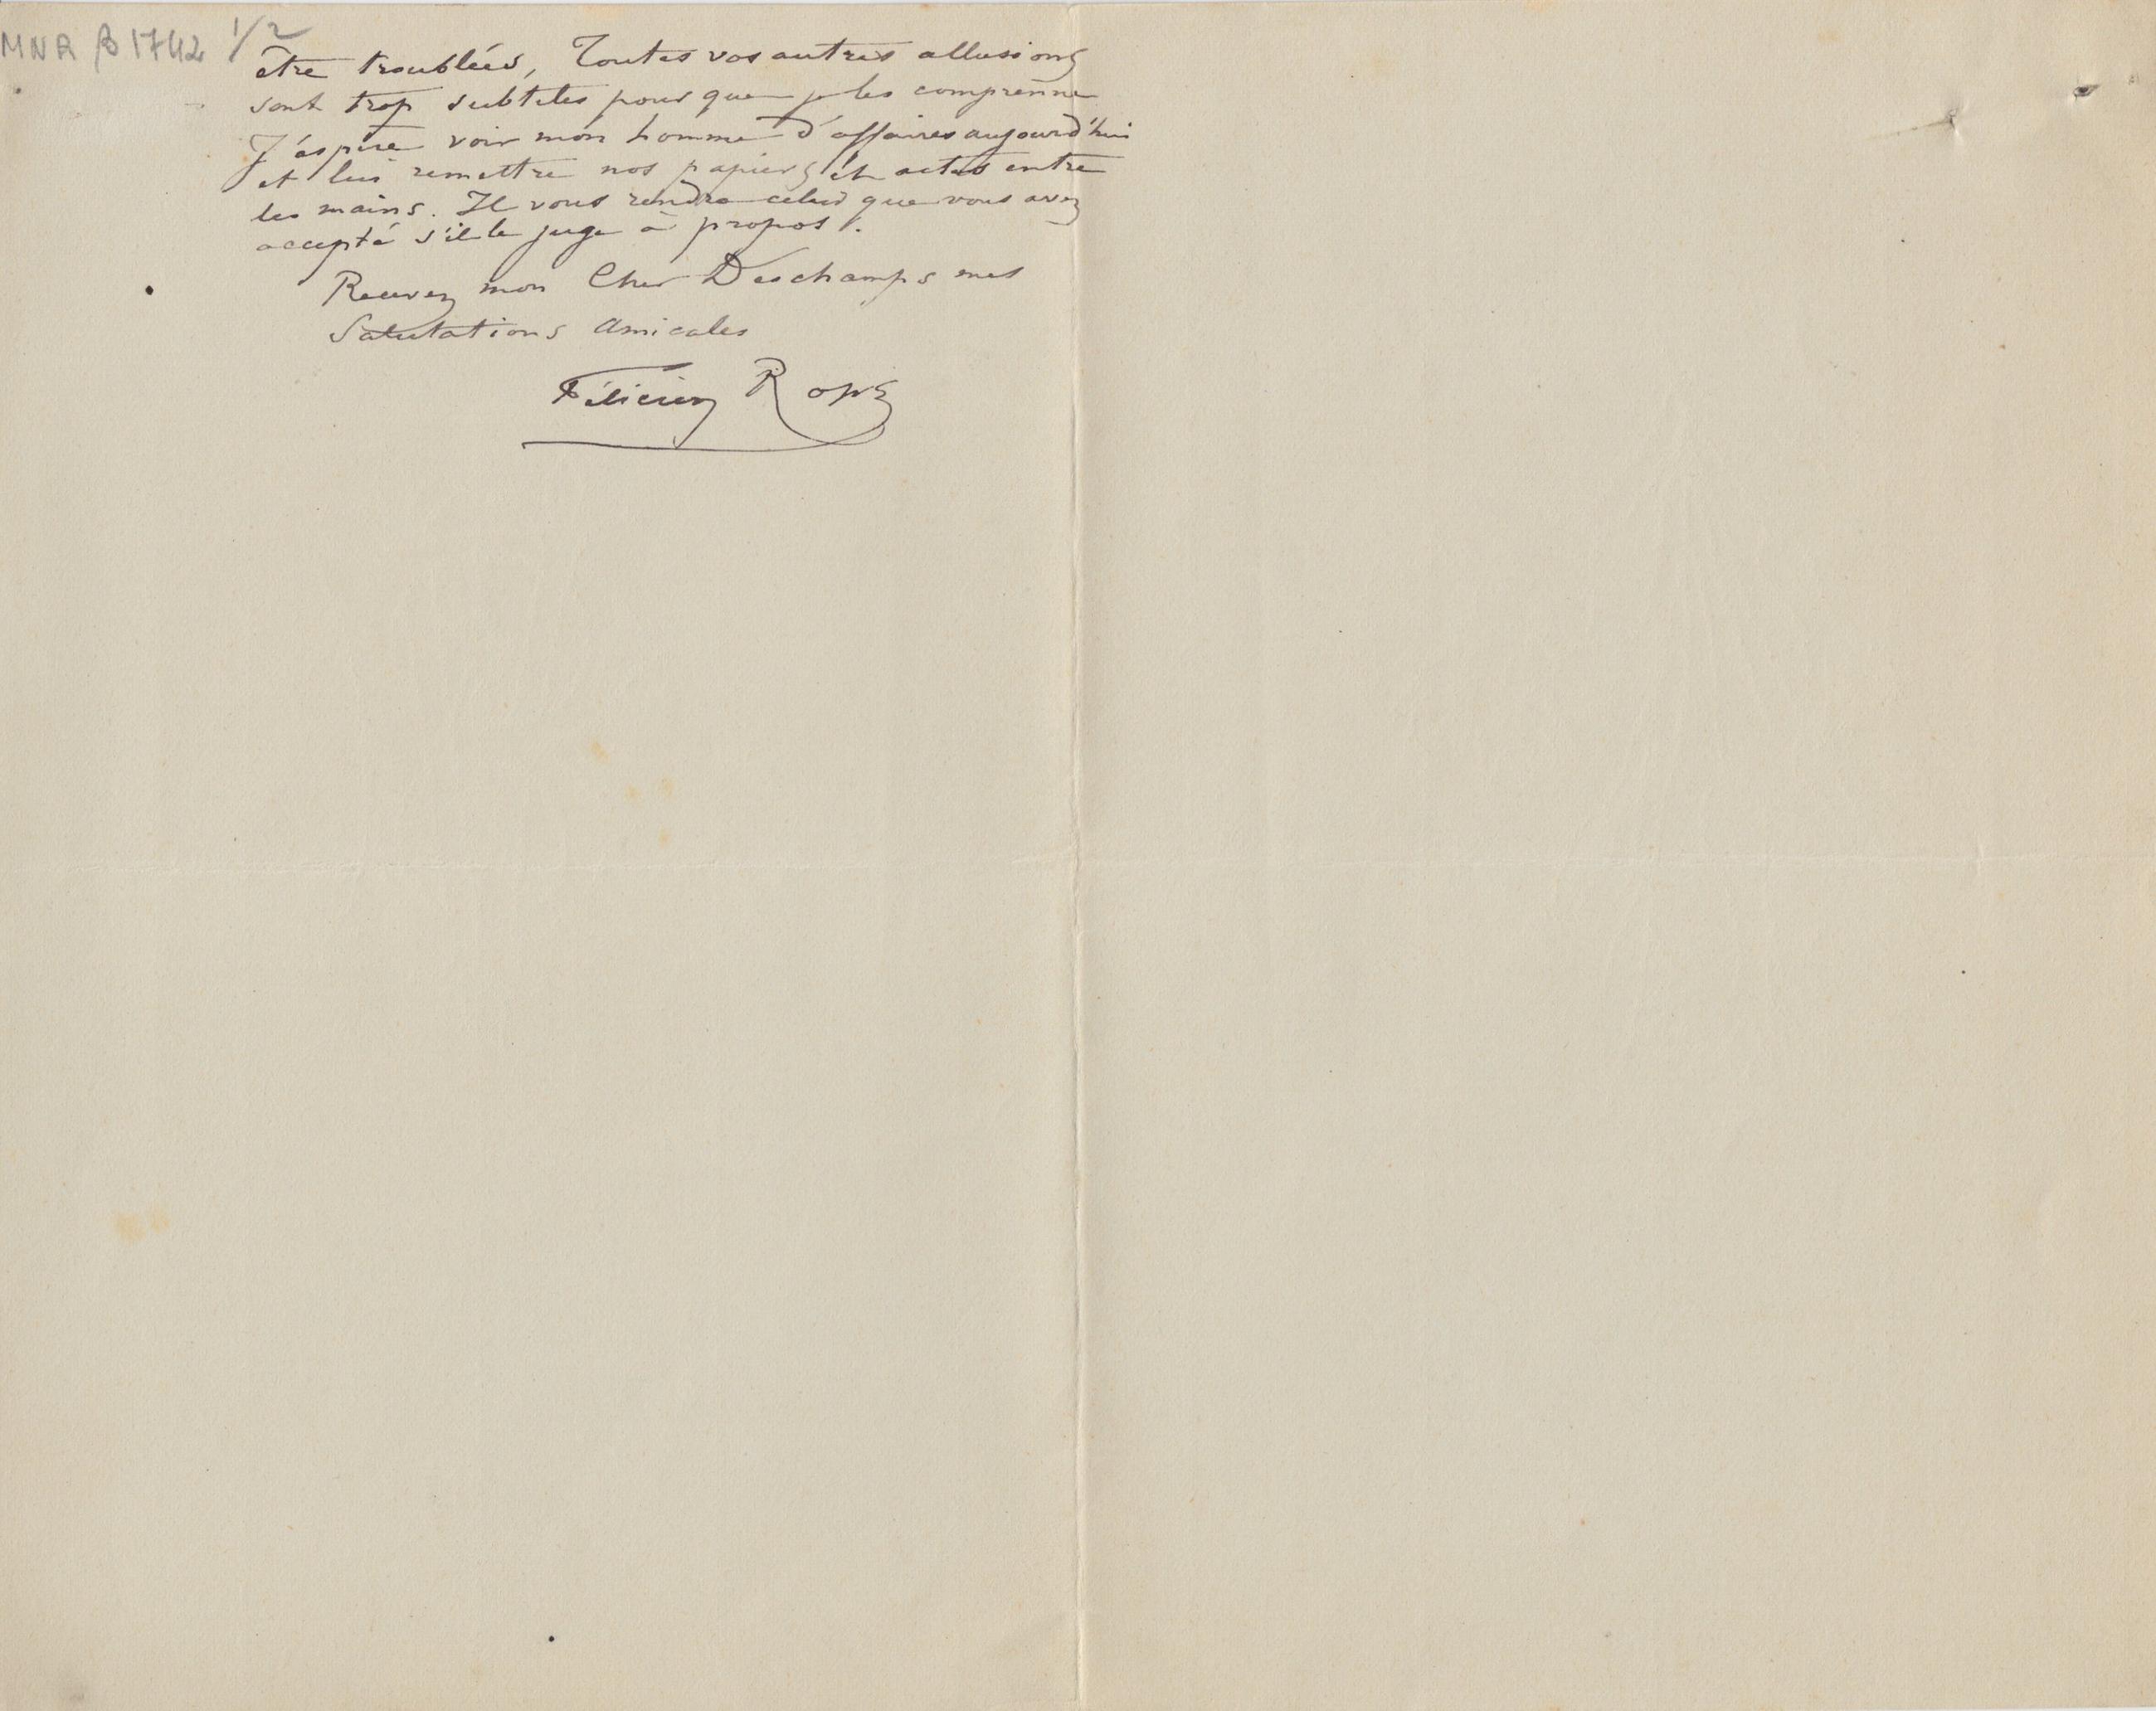 MNR B 1742 1/2
être troublées, Toutes vos autres allusions
sont trop subtiles pour que je les comprenne
J'espère voir mon homme d'affaires aujourd'hui
et lui remettre nos papiers et actes entre
les mains. Il vous rendra celui que vous avez
accepté s'il le juge à propos.
Recevez mon Cher Deschamps mes
Salutations Amicales
Félicien Rops